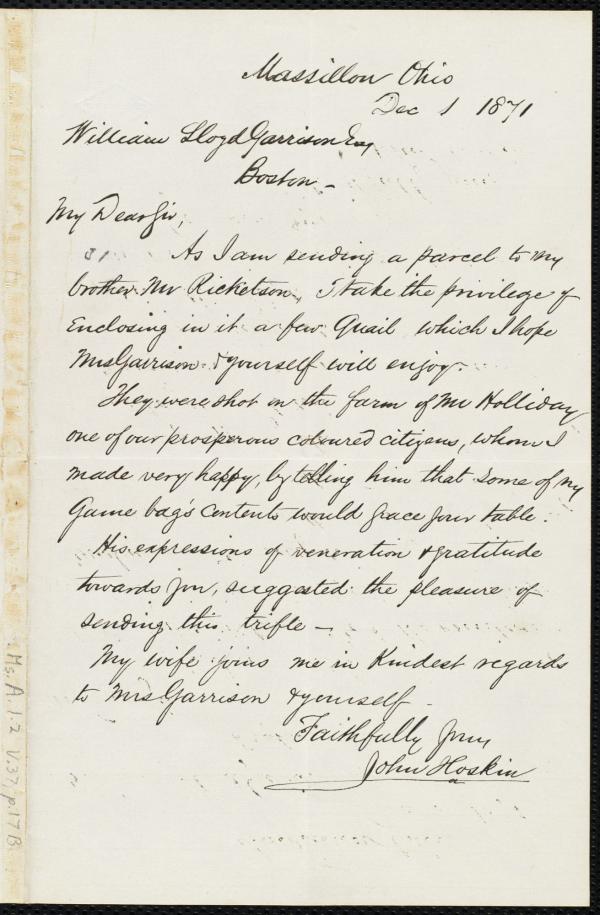 Massillon Ohio
Dec 1 1871
William Lloyd Garrison Esq
Boston -
My Dear Sir,
As I am sending a parcel to my
brother Mr Ricketson, I take the privilege of
Enclosing in it a few Quail which I hope
Mrs Garrison & yourself will enjoy.
They were shot on the farm of Mr Holliday
one of our prosperous coloured citizens, whom I
made very happy, by telling him that some of my
Game bag's contents would grace your table.
His expressions of veneration & gratitude
towards you, suggested the pleasure of
sending this trifle -
My wife joins me in Kindest regards
to Mrs Garrison & yourself -
Faithfully Yours
John Hoskin
Ms. A. 1. 2 V. 37, p. 17B